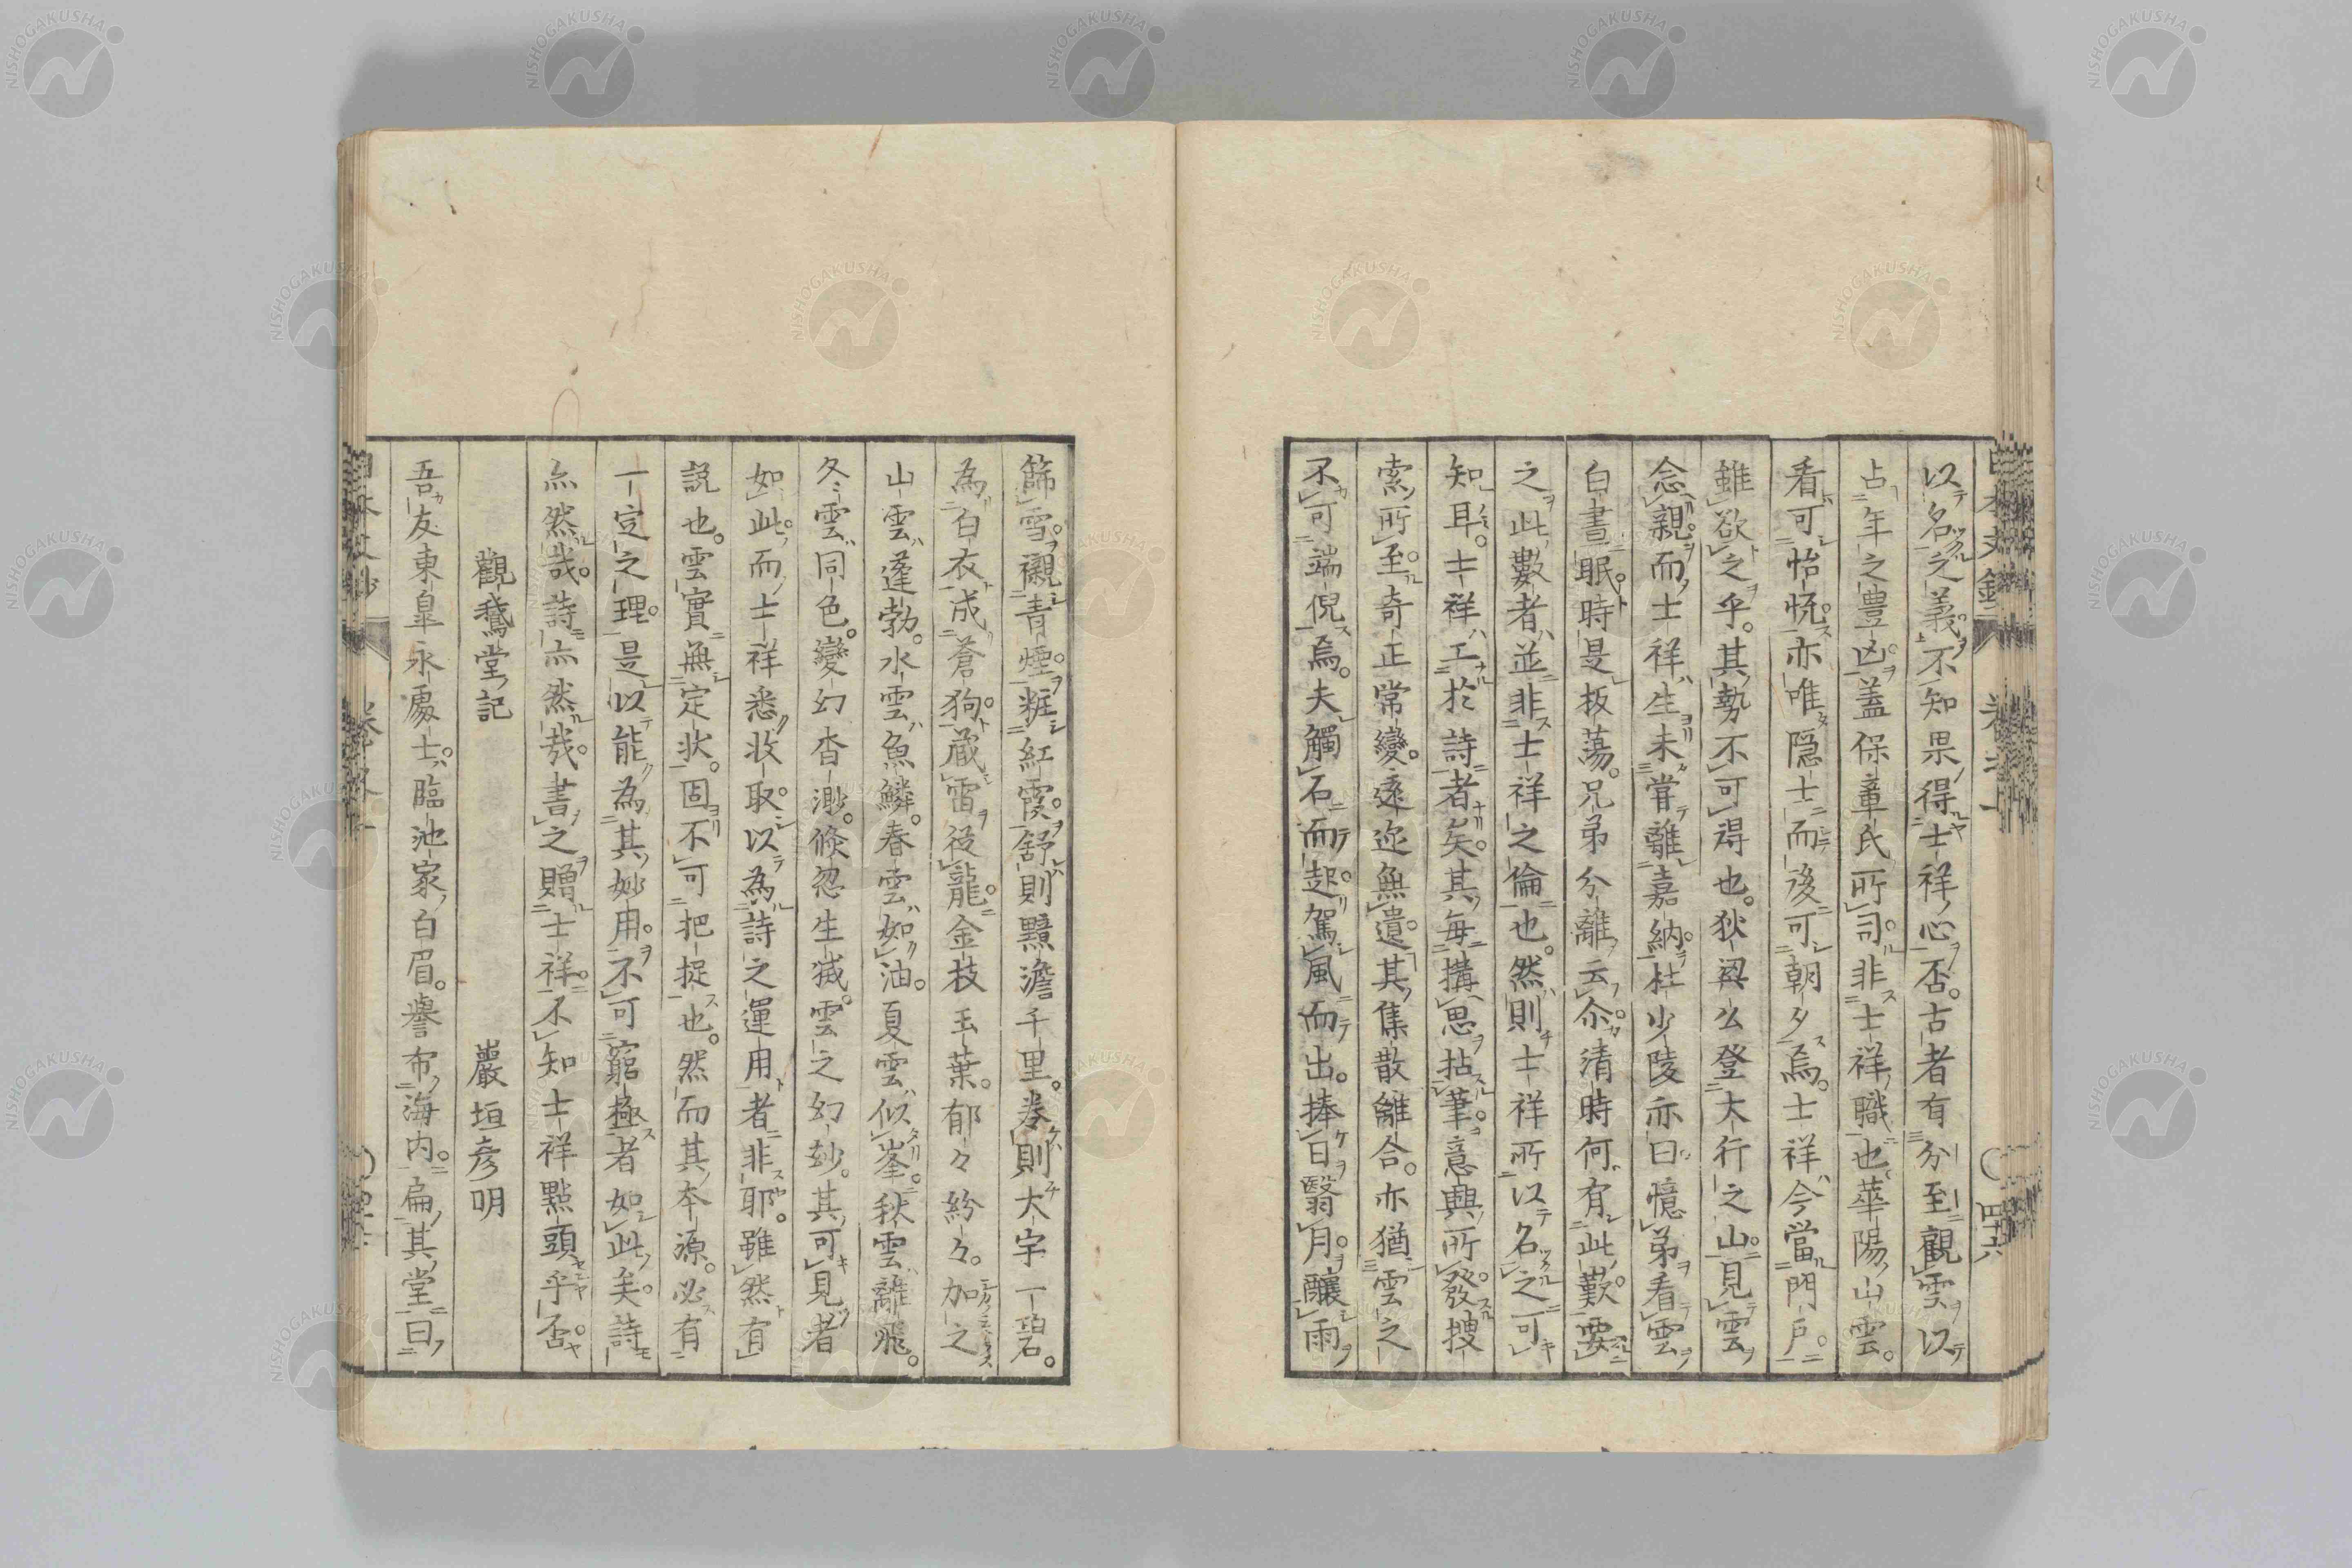 以名之義不知果得士祥心否古者有分至觀雲以
占年之豊凶蓋保章氏所司非士祥職也華陽山雲
看可怡悦亦唯隠士而後可朝夕焉士祥今當門戸
雖欲之乎其勢不可得也狄梁公登大行之山見雲
念親而士祥生未甞離嘉納杜少陵亦曰憶弟看雲
白晝眠時是板蕩兄弟分離云尒清時何有此歎要
之此數者並非士祥之倫也然則士祥所以名之可
知耳士祥工於詩者矣其毎搆思拈筆意興所發捜
索所至奇正常變遠迩無遺其集散離合亦猶雲之
不可端倪焉夫觸石而起駕風而出捧日翳月釀雨
篩雪襯青煙粧紅霞舒則黮澹千里巻則大宇一碧
為白衣成蒼狗蔵雷後龍金枝玉葉郁々紛々加之
山雲蓬勃水雲魚鱗春雲如油夏雲似峯秋雲離飛
冬雲同色變幻杳渺倏忽生滅雲之幻玅其可見者
如此而士祥悉收取以為詩之運用者非耶雖然有
説也雲實無定状固不可把捉也然而其本源必有
一定之理是以能為其妙用不可窮極者如此矣詩
亦然哉詩亦然哉書之贈士祥不知士祥點頭乎否
觀鵞堂記
巖垣彦明
吾友東皐永處士臨池家白眉譽布海内扁其堂曰